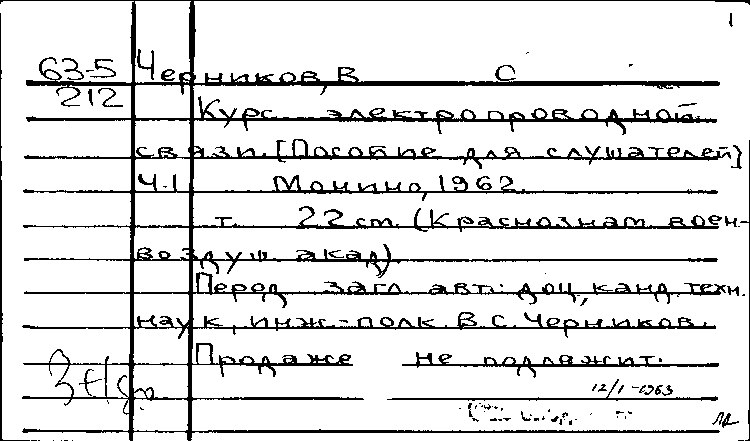 1
63-5 Черников, В С
212
Курс электропроводной
связи. [Пособие для слушателей]
Ч.1 Монино, 1962.
т. 22 см. (Краснознам. воен-
воздуш. акад).
Перед загл. авт.: доц., канд. техн.
наук, инж.-полк. В.С. Черников.
Продаже не подлежит.
12/I-1963